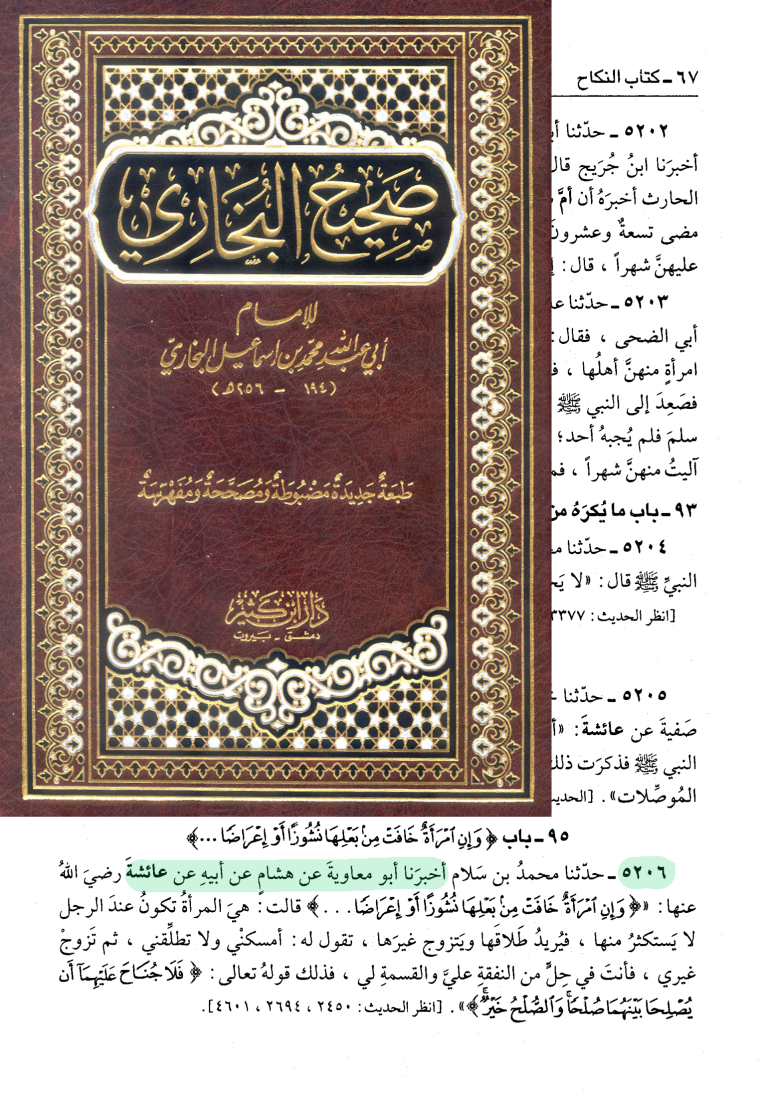 صَحِيحُ البُخَارِي
للإمام
أبي عبد الله محمد بن إسماعيل البخاريّ
(١٩٤ – ٢٥٦هـ)
طَبْعَةٌ جَدِيدَةٌ مَضْبُوطَةٌ وَمُصَحَّحَةٌ وَمُفَهْرَسَةٌ
دَارُ ابْن كَثِيْر
دمشق - بيروت
٦٧ ـ كتاب النكاح
٥٢٠٢ ـ حدّثنا
أخبرَنا ابنُ جُرَيج قال
الحارث أخبرَهُ أن أمَّ
مضى تسعةٌ وعشرونَ
عليهنَّ شهراً ، قال :
٥٢٠٣ ـ حدّثنا
أبي الضحى ، فقال :
امرأةٍ منهنَّ أهلُها ،
فصَعِدَ إلى النبي ﷺ
سلمَ فلم يُجبهُ أحد؛
آليتُ منهنَّ شهراً ،
٩٣ ـ باب ما يُكرَهُ من
٥٢٠٤ ـ حدّثنا
النبيِّ ﷺ قال : «لا
[انظر الحديث : ٣٣٧٧
٥٢٠٥ ـ حدّثنا
صَفيةَ عن عائشةَ :
النبي ﷺ فذكرَت ذلك
المُوصِّلات» .
٩٥ ـ باب ﴿ وَإِنِ ٱمْرَأَةٌ خَافَتْ مِنۢ بَعْلِهَا نُشُوزًا أَوْ إِعْرَاضًا ...﴾
٥٢٠٦ ـ حدّثنا محمدُ بن سَلام أخبرَنا أبو معاويةَ عن هشامٍ عن أبيهِ عن عائشةَ رضيَ اللهُ
عنها : «﴿ وَإِنِ ٱمْرَأَةٌ خَافَتْ مِنۢ بَعْلِهَا نُشُوزًا أَوْ إِعْرَاضًا . . . ﴾ قالت : هيَ المرأةُ تكونُ عندَ الرجل
لا يَستكثرُ منها ، فيُريدُ طَلاقَها ويَتزوج غيرَها ، تقول له : أمسكنْي ولا تطلِّقني ، ثم تَزوجْ
غيري ، فأنتَ في حِلٍّ من النفقةِ عليَّ والقسمةِ لي ، فذلك قولهُ تعالى : ﴿ فَلَا جُنَاحَ عَلَيْهِمَآ أَن
يُصْلِحَا بَيْنَهُمَا صُلْحًا ۚ وَٱلصُّلْحُ خَيْرٌ ۗ ﴾» . [انظر الحديث : ٢٤٥٠ ، ٢٦٩٤ ، ٤٦٠١].